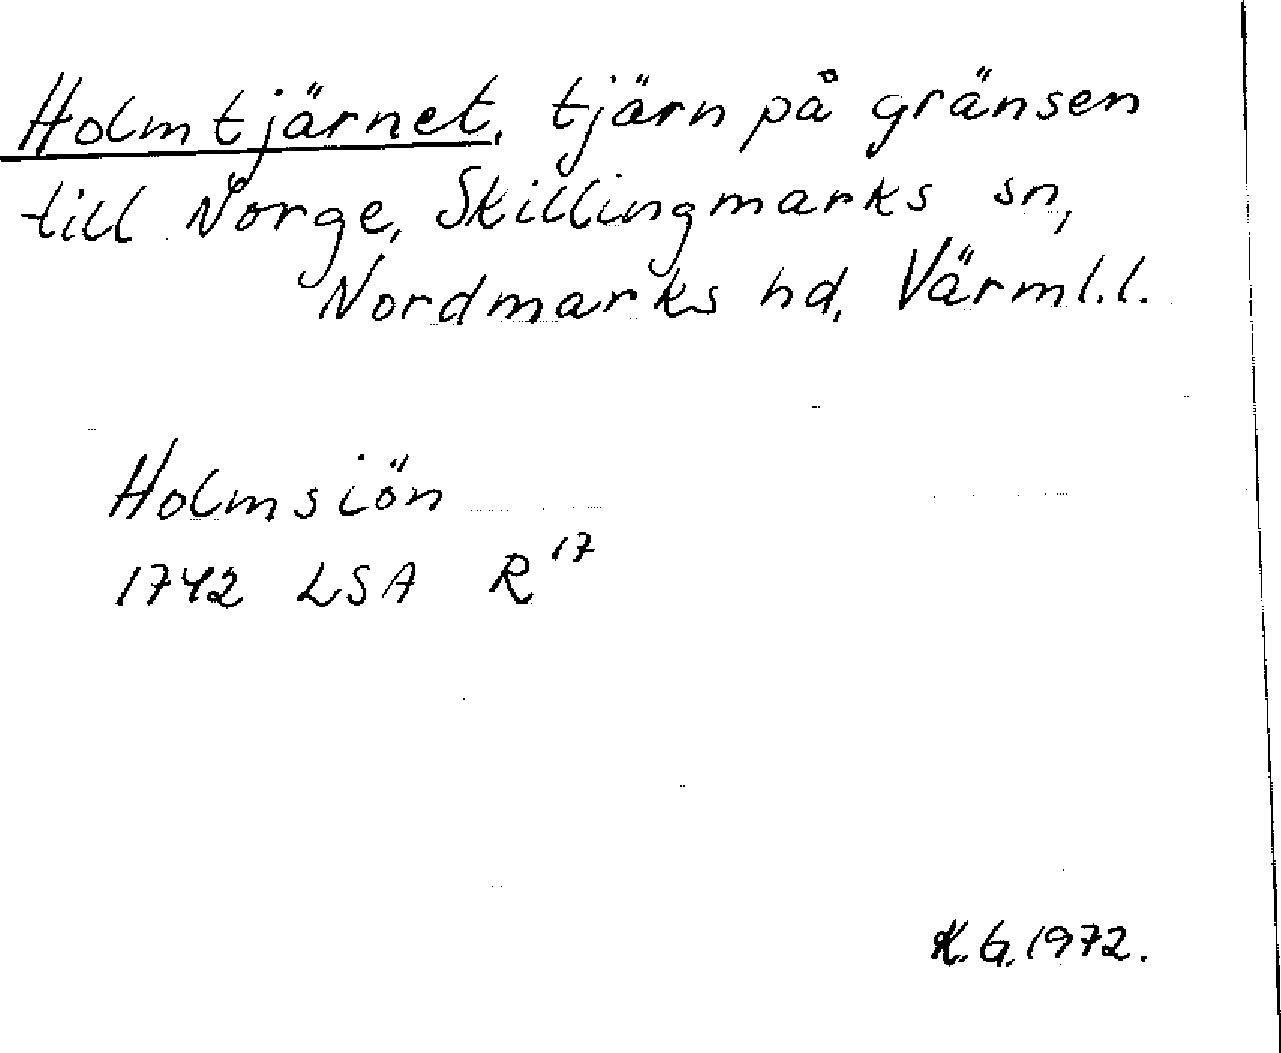 Holmtjärnet, tjärn på gränsen
till Norge, Skillingmarks sn,
Nordmarks hd, Värml.l.
Holmsiön
1742 LSA R17
K.G. 1972.